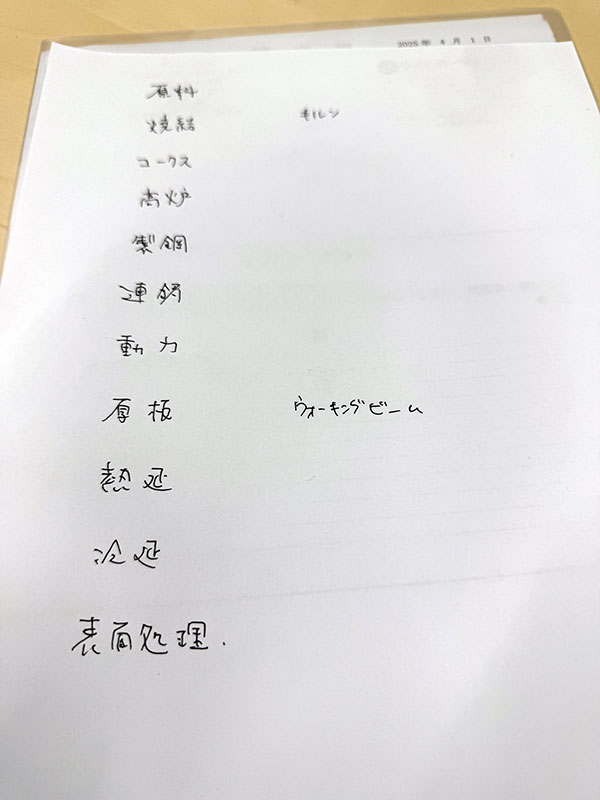 2025年 4月 1日
原料
焼結 キルン
コークス
高炉
製鋼
連鋳
動力
厚板 ウォーキングビーム
熱延
冷延
表面処理.